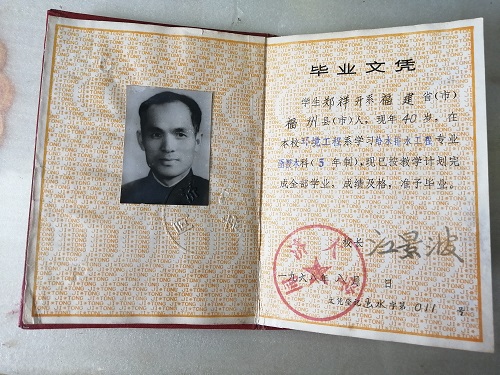 毕业文凭
学生郑祥升系福建省(市)
福州县(市)人,现年40岁,在
本校环境工程系学习给水排水工程专业
函授本科(5年制),现已按教学计划完
成全部学业,成绩及格,准予毕业。
校长 江景波
一九八 年八月 日
文凭登记 水字第011号